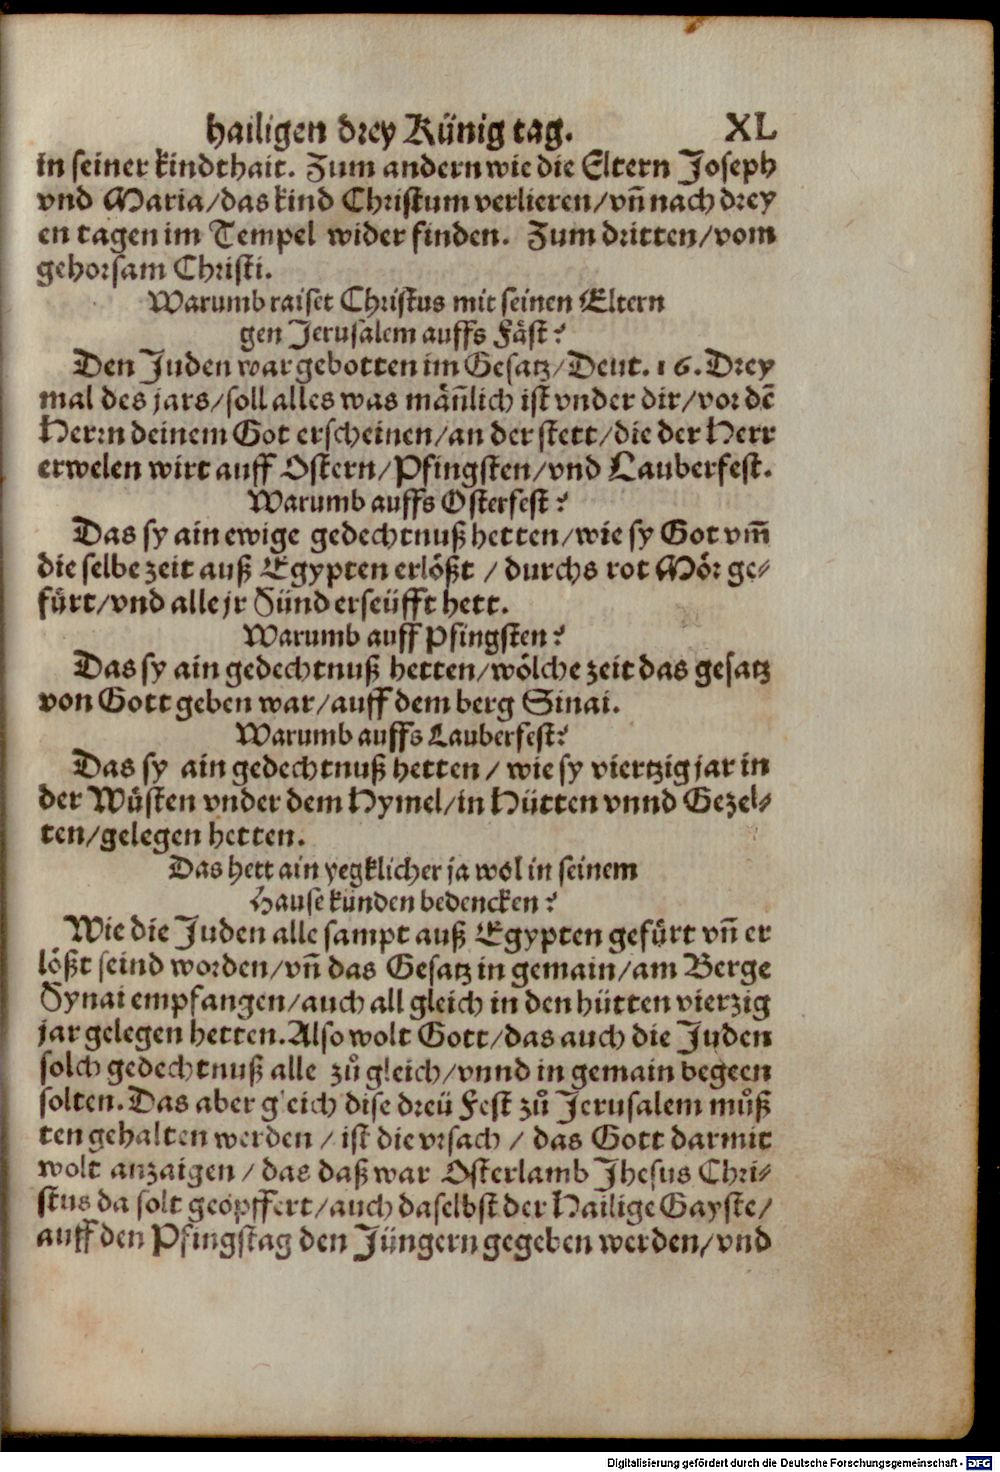 hailigen drey Künig tag. XL
in seiner kindthait. Zum andern wie die Eltern Joseph
vnd Maria/das kind Christum verlieren/vñ nach drey
en tagen im Tempel wider finden. Zum dritten/vom
gehorsam Christi.
Warumb raiset Christus mit seinen Eltern
gen Jerusalem auffs Fäst?
Den Juden war gebotten im Gesatz/Deut. 16. Drey
mal des jars/soll alles was män̄lich ist vnder dir/vor dē
Herrn deinem Got erscheinen/an der stett/die der Herr
erwelen wirt auff Ostern/Pfingsten/vnd Lauberfest.
Warumb auffs Osterfest?
Das sy ain ewige gedechtnuß hetten/wie sy Got vm̄
die selbe zeit auß Egypten erlößt / durchs rot Mör ge-
fürt/vnd alle jr Sünd erseüfft hett.
Warumb auff Pfingsten?
Das sy ain gedechtnuß hetten/wölche zeit das gesatz
von Gott geben war/auff dem berg Sinai.
Warumb auffs Lauberfest?
Das sy ain gedechtnuß hetten / wie sy viertzig jar in
der Wüsten vnder dem Hymel/in Hütten vnnd Gezel-
ten/gelegen hetten.
Das hett ain yegklicher ja wol in seinem
Hause künden bedencken?
Wie die Juden alle sampt auß Egypten gefürt vñ er
lößt seind worden/vñ das Gesatz in gemain/am Berge
Synai empfangen/auch all gleich in den hütten vierzig
jar gelegen hetten. Also wolt Gott/das auch die Juden
solch gedechtnuß alle zů gleich/vnnd in gemain begeen
solten. Das aber gleich dise dreü Fest zů Jerusalem můß
ten gehalten werden / ist die vrsach / das Gott darmit
wolt anzaigen / das daß war Osterlamb Jhesus Chri-
stus da solt geopffert/auch daselbst der Hailige Gayste/
auff den Pfingstag den Jüngern gegeben werden/vnd
Digitalisierung gefördert durch die Deutsche Forschungsgemeinschaft - DFG